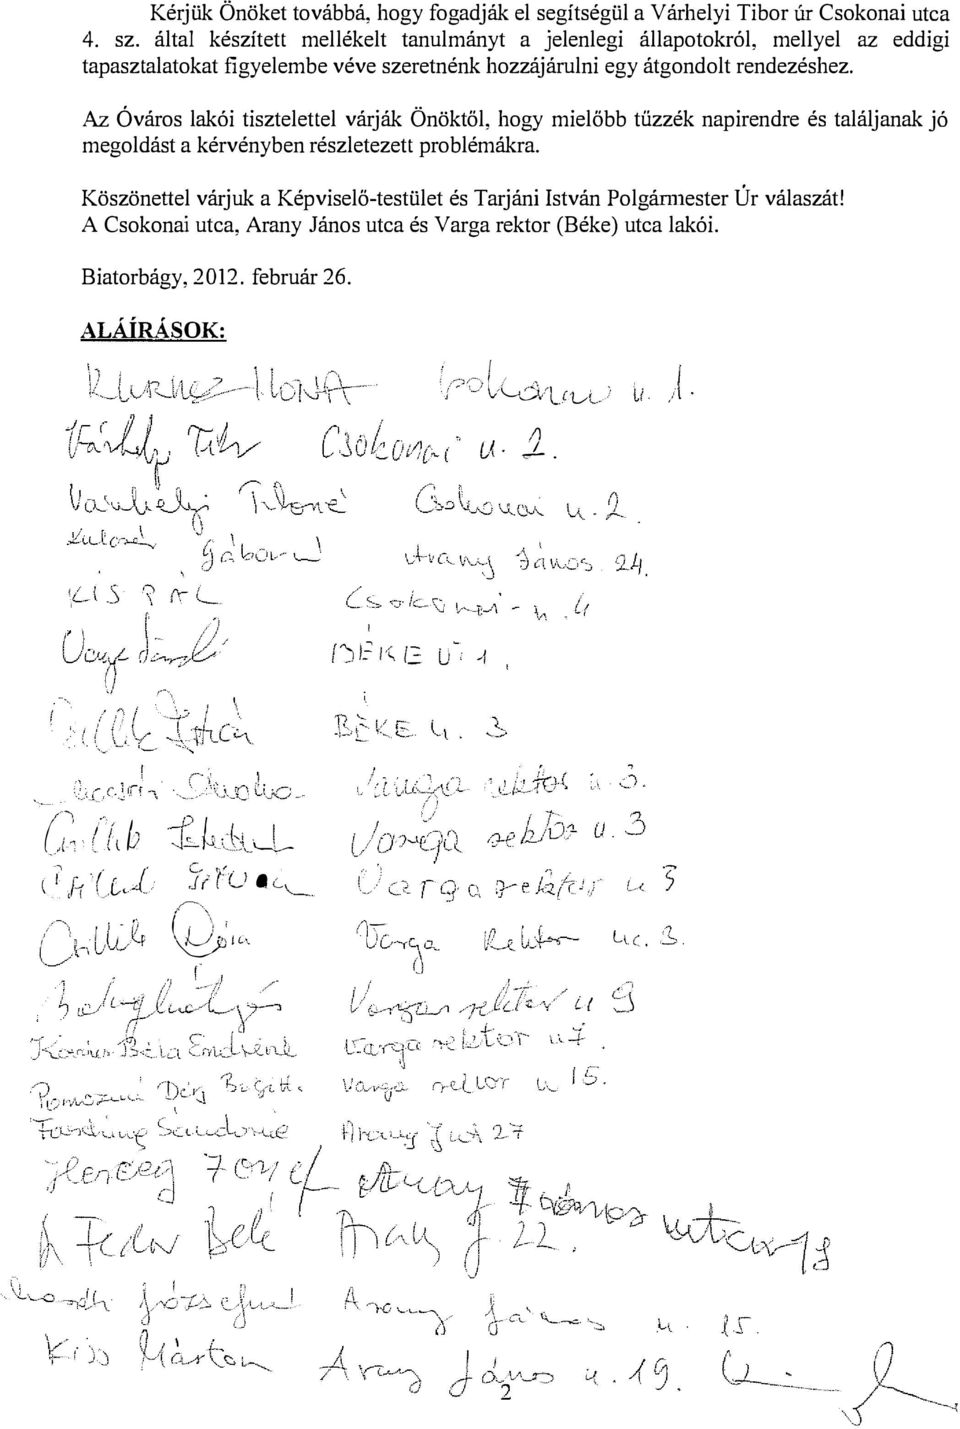 Kérjük Önöket továbbá, hogy fogadják el segítségül a Várhelyi Tibor úr Csokonai utca
4. sz. által készített mellékelt tanulmányt a jelenlegi állapotokról, mellyel az eddigi
tapasztalatokat figyelembe véve szeretnénk hozzájárulni egy átgondolt rendezéshez.
Az Óváros lakói tisztelettel várják Önöktől, hogy mielőbb tűzzék napirendre és találjanak jó
megoldást a kérvényben részletezett problémákra.
Köszönettel várjuk a Képviselő-testület és Tarjáni István Polgármester Úr válaszát!
A Csokonai utca, Arany János utca és Varga rektor (Béke) utca lakói.
Biatorbágy, 2012. február 26.
ALÁÍRÁSOK:
ILONA Csokonai u. 1.
Várhelyi Tibor Csokonai u. 2.
Várhelyi Tiborné Csokonai u. 2.
Gáborné Arany János 24.
KIS PÁL Csokonai u. 4
Varga László BÉKE U. 1.
Csillik István BÉKE U. 3
Varga rektor u. 3.
Csillik Varga rektor u. 3
Csillik István Varga rektor u 3
Csillik Dóra Varga Rektor u. 3.
Varga rektor u 9
Béla Endréné Varga rektor u 7.
Varga rektor u 15.
Sándorné Arany J u 27
Herceg József Arany János utca 18
Fedor Béla Arany J. 22.
Józsefné Arany János u. 15.
Kiss Márton Arany János u. 19.
2